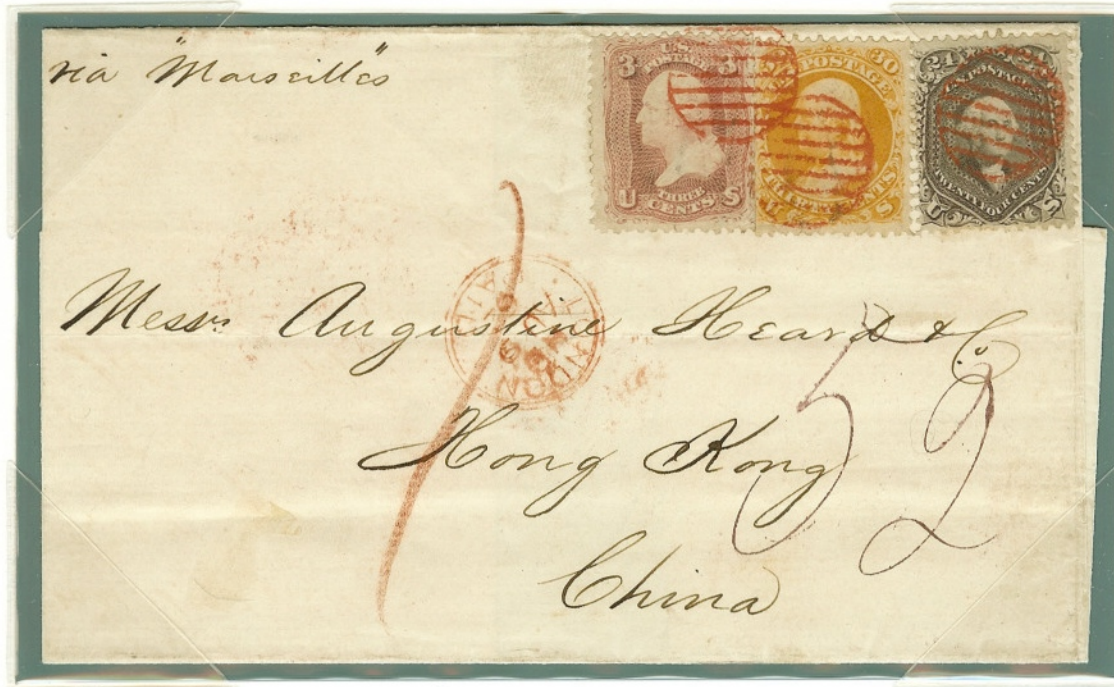 via "Marseilles"
3 U.S. POSTAGE 3
THREE CENTS
U S
POSTAGE 30
THIRTY CENTS
S
24 U.S. POSTAGE
TWENTY FOUR CENTS
U S
Messrs Augustine Heard & Co.
Hong Kong
China
52
LONDON
PAID